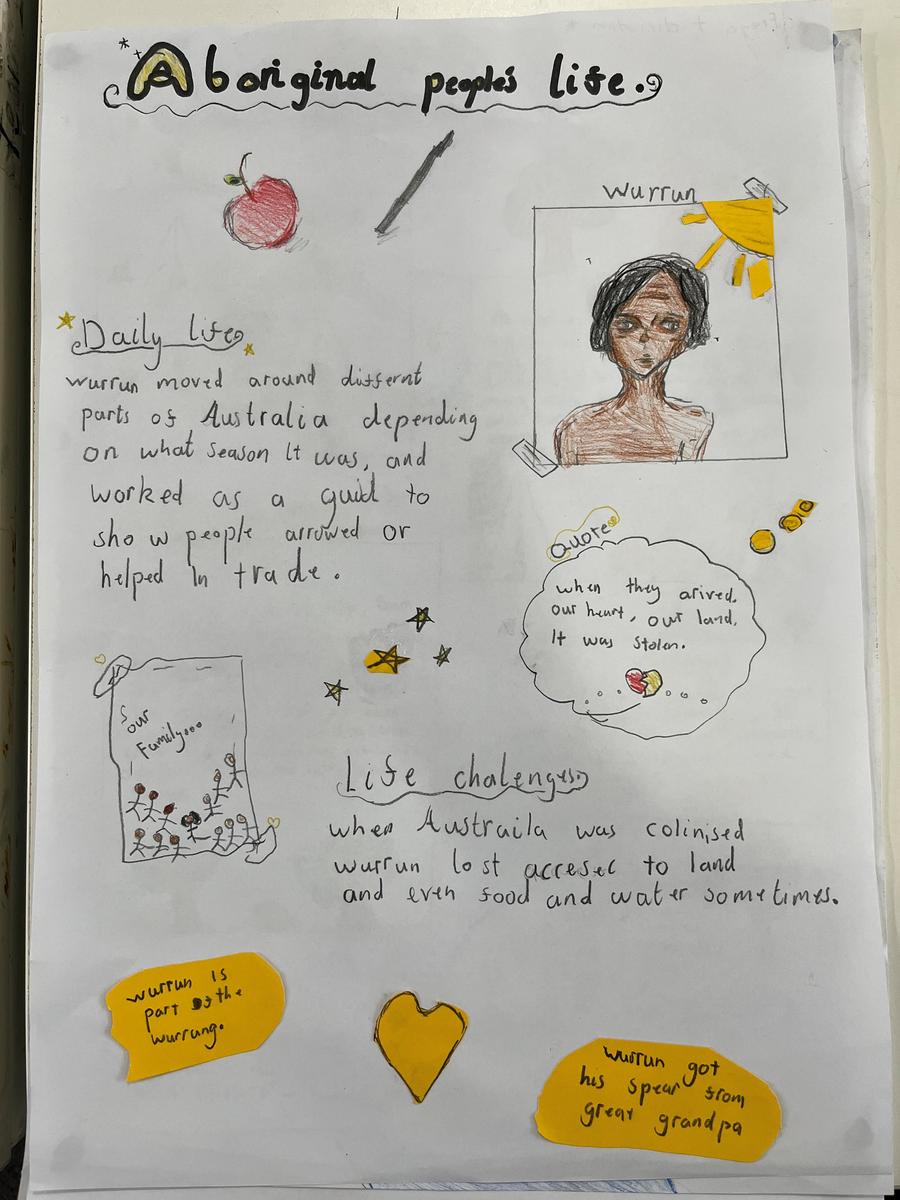 Aboriginal people's life.
Wurrun
Daily life
wurrun moved around differnt
parts of Australia depending
on what season It was, and
worked as a guid to
show people arrowed or
helped In trade.
Quote
when they arived.
our heart, our land.
It was stolen.
our
Family...
Life chalenges.
when Austraila was colinised
wurrun lost accesec to land
and even food and water sometimes.
wurrun is
part of the
wurrung.
wurrun got
his spear from
great grandpa